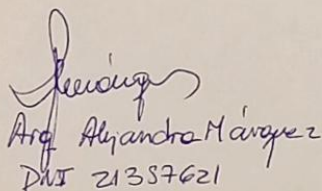 Arq Alejandra Márquez
DNI 21357621